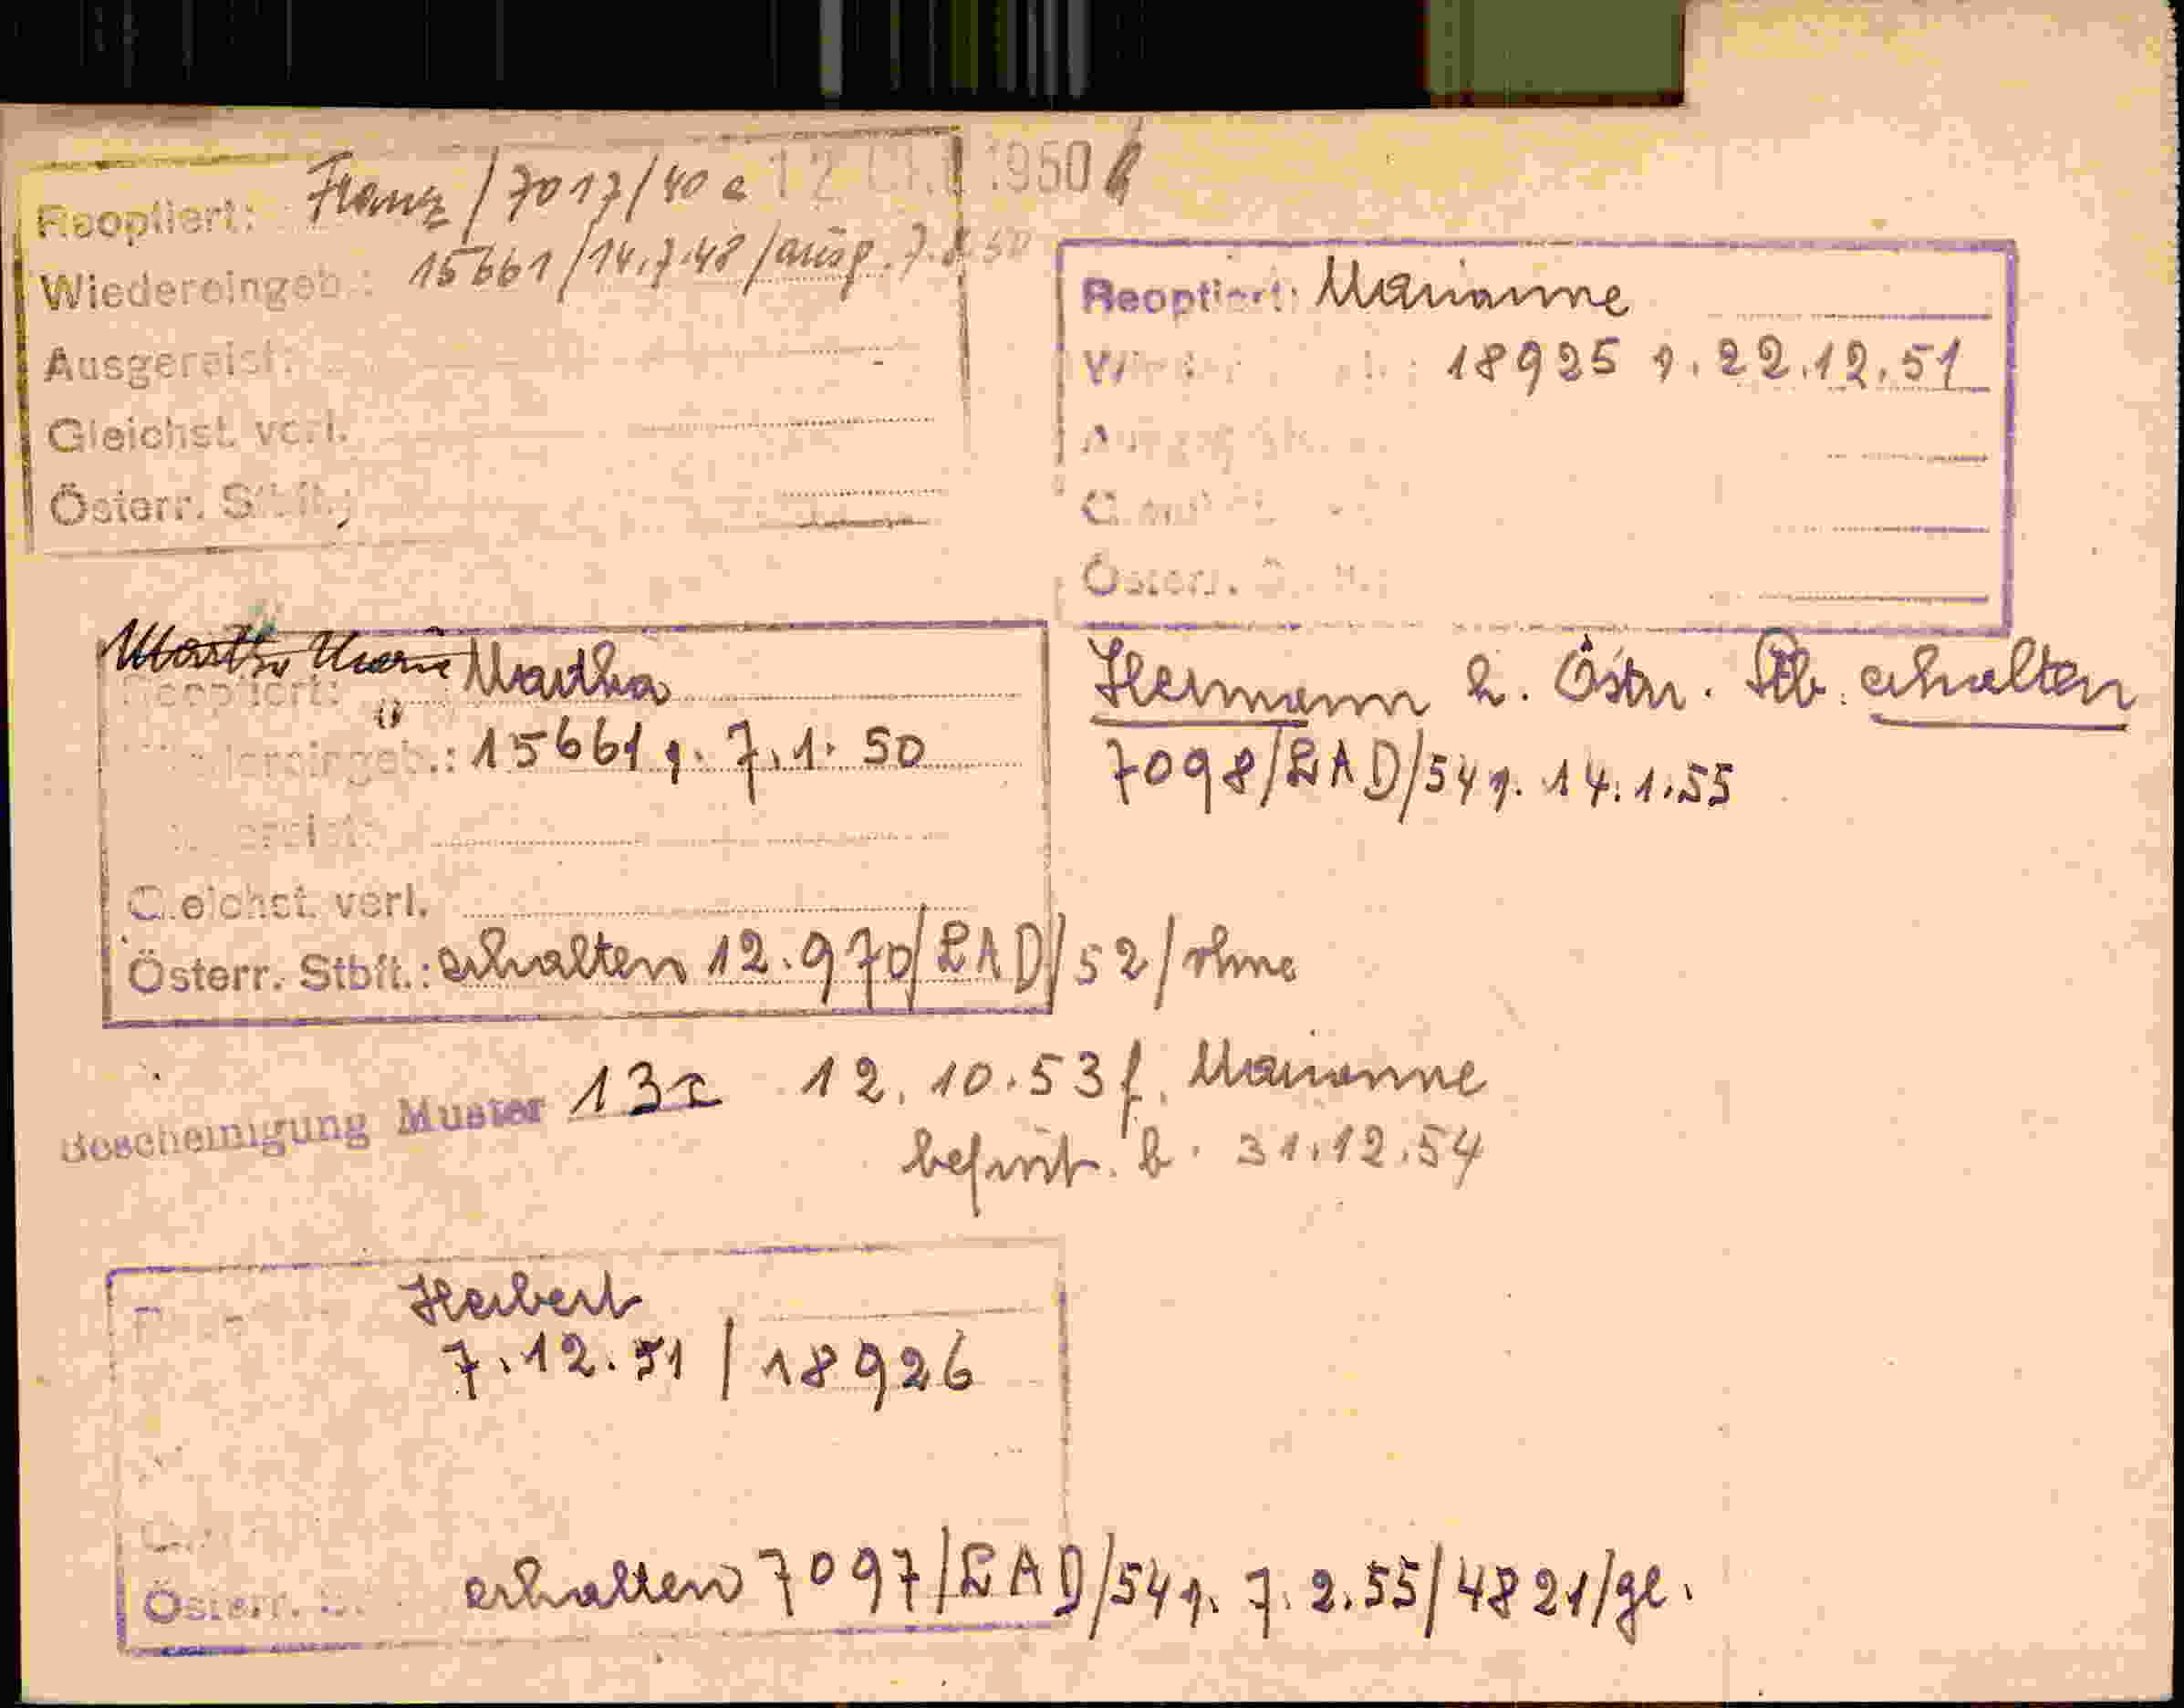 Reoptiert: Franz / 7017/40 a 12 1950
Wiedereingeb.: 15661/14.7.48/ausg. 7.
Ausgereist:
Gleichst. verl.
Österr. Stbft.:
Reoptiert: Marianne
18925 v. 22.12.51
Österr.
Martha Maria Martha
Reoptiert:
Wiedereingeb.: 15661 v. 7.1.50
Gleichst. verl.
Österr. Stbft.: erhalten 12.970/LAD/52/ohne
Hermann h. Östr. Stb. erhalten
7098/LAD/54 v. 14.1.55
Bescheinigung Muster 13c 12.10.53 f. Marianne
befrist. b. 31.12.54
Herbert
7.12.51 / 18926
Österr. erhalten 7097/LAD/54 v. 7.2.55/4821/ge.